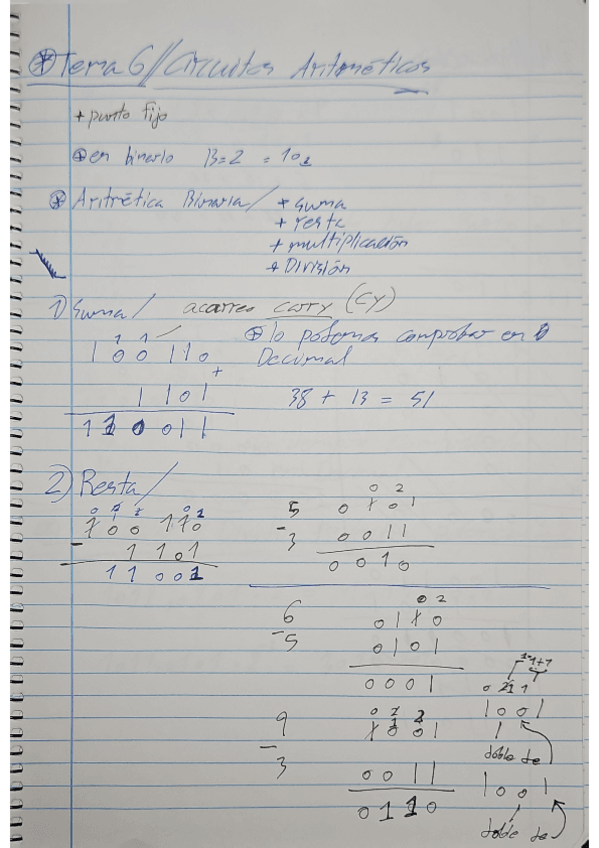 * Tema 6 // Circuitos Aritméticos
+ punto fijo
* en binario B=2 = 10₂
* Aritmética Binaria / + suma
+ resta
+ multiplicación
+ División
1) Suma / acarreo carry (CY)
1 1
1 0 0 1 1 0
+
1 1 0 1
1 1 0 0 1 1
* lo podemos comprobar en
Decimal
38 + 13 = 51
2) Resta /
1 0 0 1 1 0
- 1 1 0 1
1 1 0 0 1
0 2
5 0 1 0 1
- 3 0 0 1 1
0 0 1 0
0 2
6 0 1 1 0
- 5 0 1 0 1
0 0 0 1
9 1 0 0 1
- 3 0 0 1 1
0 1 1 0
1+1
1 0 0 1
1
doble de
1 0 0 1
doble de